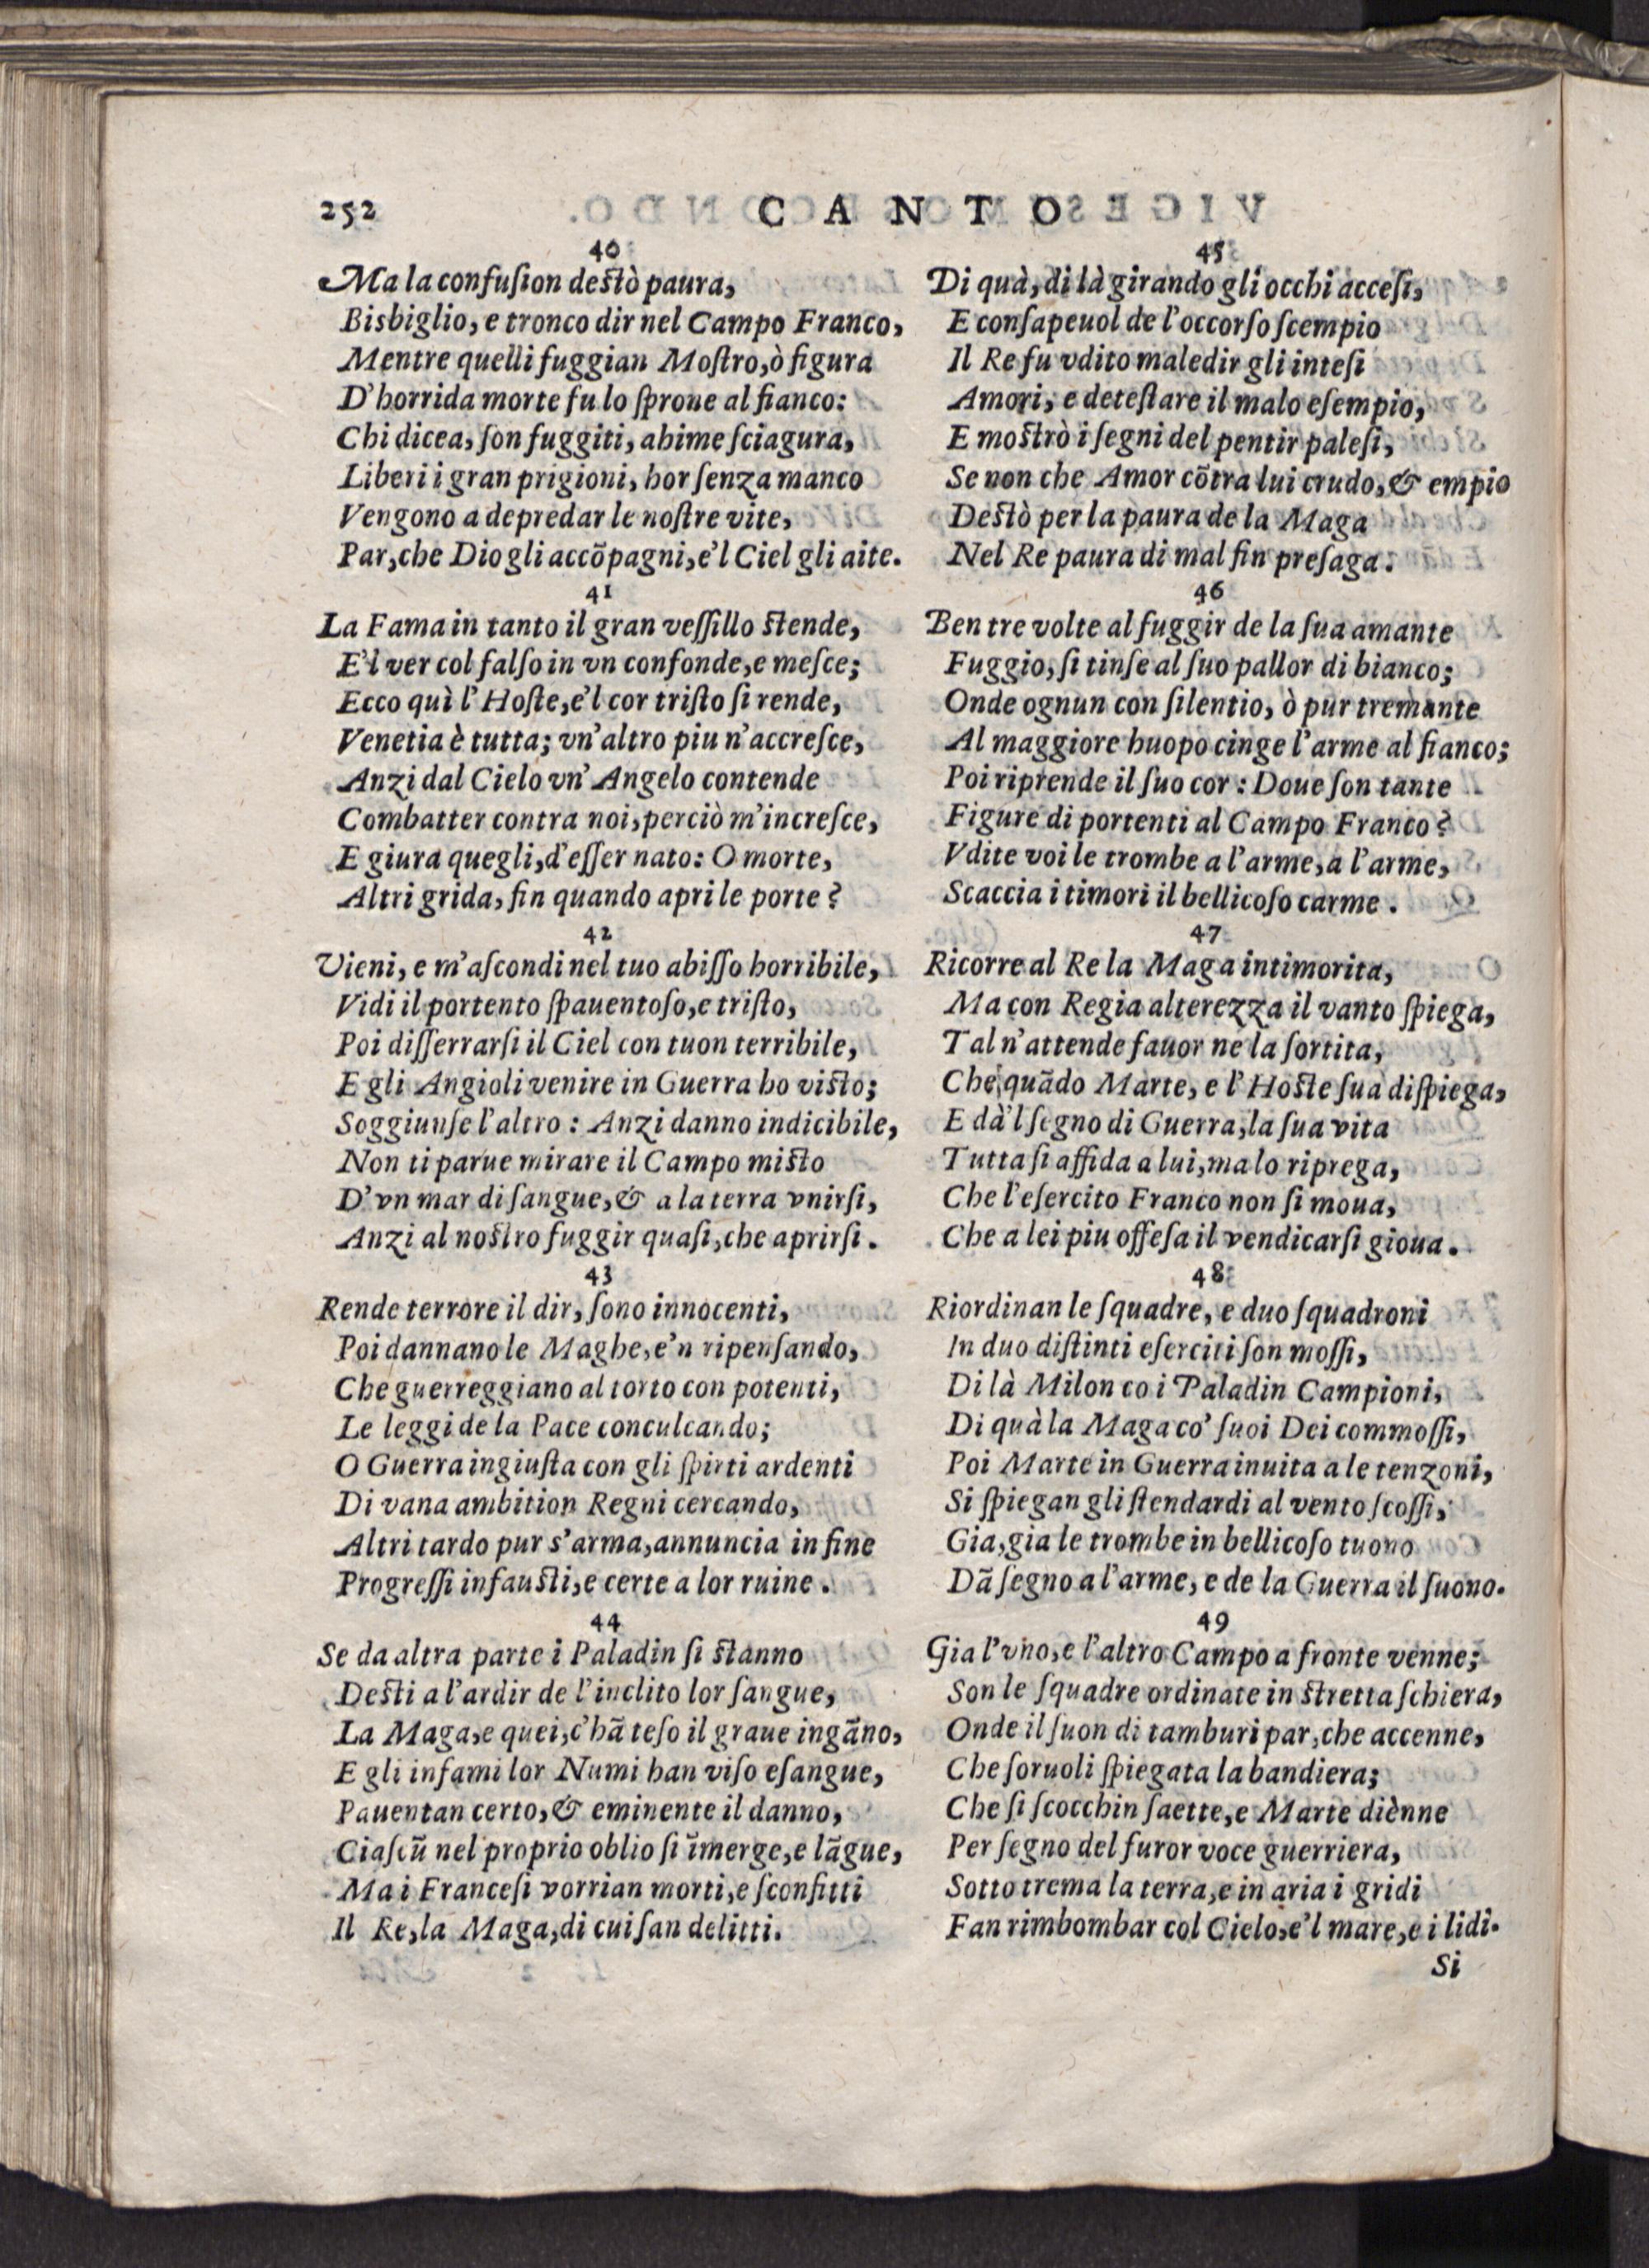 252
CANTO
40
Ma la confuſion deſtò paura,
Bisbiglio, e tronco dir nel Campo Franco,
Mentre quelli fuggian Moſtro, ò figura
D'horrida morte fu lo ſprone al fianco:
Chi dicea, ſon fuggiti, ahime ſciagura,
Liberi i gran prigioni, hor ſenza manco
Vengono a depredar le noſtre vite,
Par, che Dio gli accõpagni, e'l Ciel gli aite.
41
La Fama in tanto il gran veſſillo ſtende,
E'l ver col falſo in vn confonde, e meſce;
Ecco quì l'Hoſte, e'l cor triſto ſi rende,
Venetia è tutta; vn'altro piu n'accreſce,
Anzi dal Cielo vn'Angelo contende
Combatter contra noi, perciò m'increſce,
E giura quegli, d'eſſer nato: O morte,
Altri grida, fin quando apri le porte?
42
Vieni, e m'aſcondi nel tuo abiſſo horribile,
Vidi il portento ſpauentoſo, e triſto,
Poi diſſerrarſi il Ciel con tuon terribile,
E gli Angioli venire in Guerra ho viſto;
Soggiunſe l'altro: Anzi danno indicibile,
Non ti parue mirare il Campo miſto
D'vn mar di ſangue, & a la terra vnirſi,
Anzi al noſtro fuggir quaſi, che aprirſi.
43
Rende terrore il dir, ſono innocenti,
Poi dannano le Maghe, e'n ripenſando,
Che guerreggiano al torto con potenti,
Le leggi de la Pace conculcando;
O Guerra ingiuſta con gli ſpirti ardenti
Di vana ambition Regni cercando,
Altri tardo pur s'arma, annuncia in fine
Progreſſi infauſti, e certe a lor ruine.
44
Se da altra parte i Paladin ſi ſtanno
Deſti a l'ardir de l'inclito lor ſangue,
La Maga, e quei, c'hã teſo il graue ingãno,
E gli infami lor Numi han viſo eſangue,
Pauentan certo, & eminente il danno,
Ciaſcũ nel proprio oblio ſi ĩmerge, e lãgue,
Ma i Franceſi vorrian morti, e ſconfitti
Il Re, la Maga, di cui ſan delitti.
45
Di quà, di là girando gli occhi acceſi,
E conſapeuol de l'occorſo ſcempio
Il Re fu vdito maledir gli inteſi
Amori, e deteſtare il malo eſempio,
E moſtrò i ſegni del pentir paleſi,
Se non che Amor cõtra lui crudo, & empio
Deſtò per la paura de la Maga
Nel Re paura di mal fin preſaga.
46
Ben tre volte al fuggir de la ſua amante
Fuggio, ſi tinſe al ſuo pallor di bianco;
Onde ognun con ſilentio, ò pur tremante
Al maggiore huopo cinge l'arme al fianco;
Poi riprende il ſuo cor: Doue ſon tante
Figure di portenti al Campo Franco?
Vdite voi le trombe a l'arme, a l'arme,
Scaccia i timori il bellicoſo carme.
47
Ricorre al Re la Maga intimorita,
Ma con Regia alterezza il vanto ſpiega,
Tal n'attende fauor ne la ſortita,
Che, quãdo Marte, e l'Hoſte ſua diſpiega,
E dà'l ſegno di Guerra, la ſua vita
Tutta ſi affida a lui, ma lo riprega,
Che l'eſercito Franco non ſi moua,
Che a lei piu offeſa il vendicarſi gioua.
48
Riordinan le ſquadre, e duo ſquadroni
In duo diſtinti eſerciti ſon moſſi,
Di là Milon co i Paladin Campioni,
Di quà la Maga co' ſuoi Dei commoſſi,
Poi Marte in Guerra inuita a le tenzoni,
Si ſpiegan gli ſtendardi al vento ſcoſſi,
Gia, gia le trombe in bellicoſo tuono
Dã ſegno a l'arme, e de la Guerra il ſuono.
49
Gia l'vno, e l'altro Campo a fronte venne;
Son le ſquadre ordinate in ſtretta ſchiera,
Onde il ſuon di tamburi par, che accenne,
Che ſoruoli ſpiegata la bandiera;
Che ſi ſcocchin ſaette, e Marte diènne
Per ſegno del furor voce guerriera,
Sotto trema la terra, e in aria i gridi
Fan rimbombar col Cielo, e'l mare, e i lidi.
Si